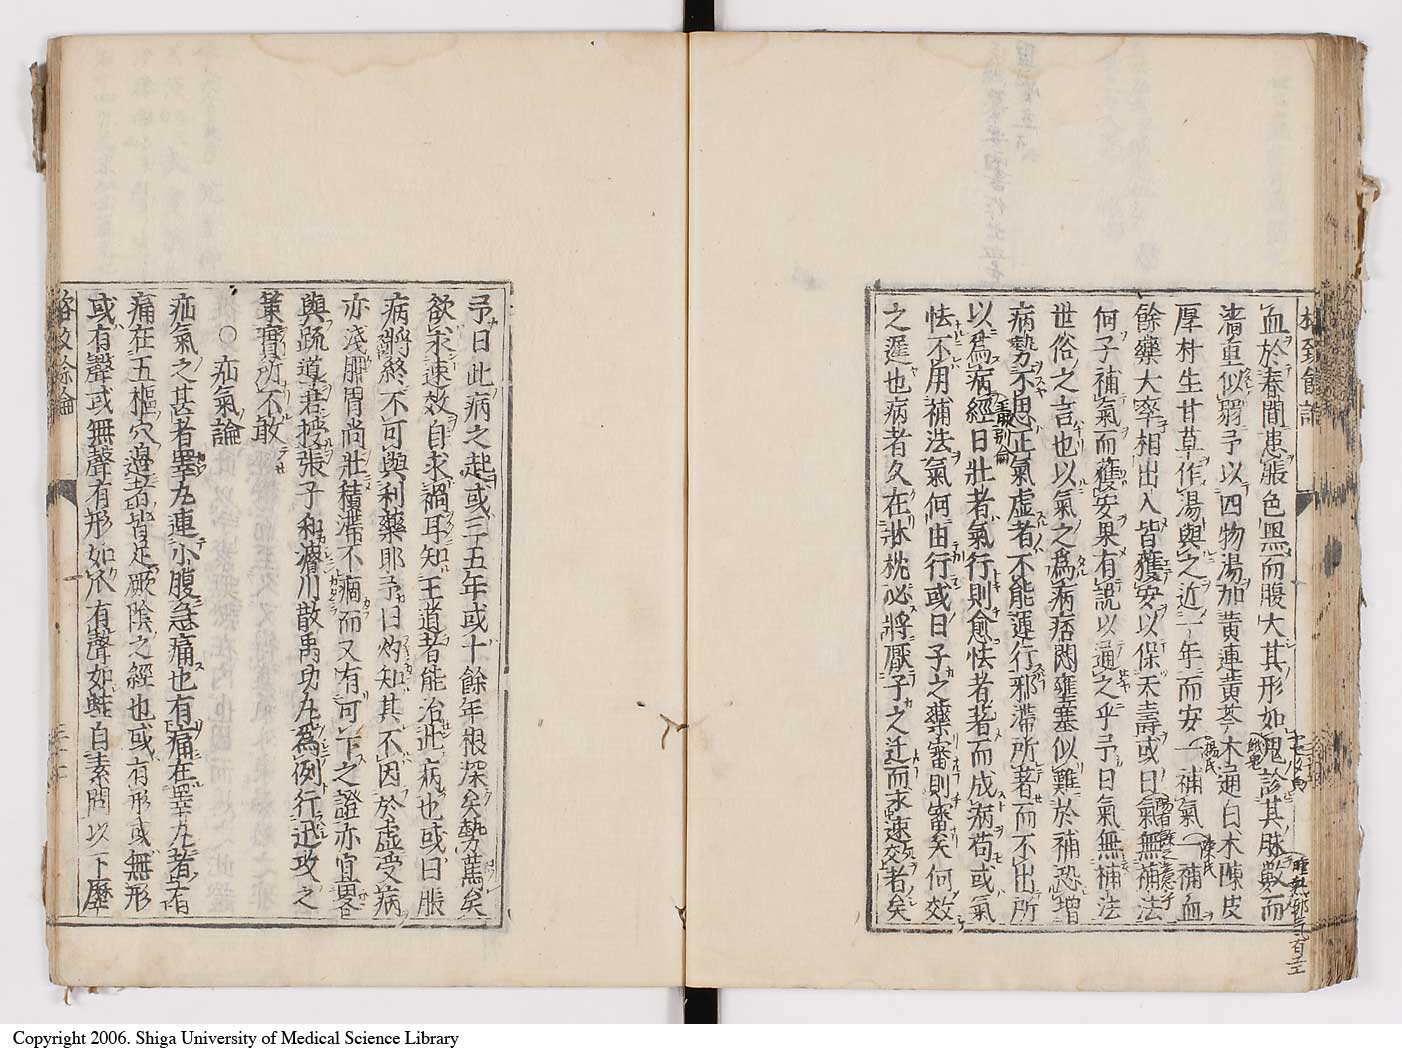 血於春間患脹色黑而腹大其形如鬼診其脉數而
濇重似弱予以四物湯加黃連黃芩木通白朮陳皮
厚朴生甘草作湯與之近一年而安一補氣一補血
餘藥大率相出入皆獲安以保天壽或曰氣無補法
何子補氣而獲安果有說以通之乎予曰氣無補法
世俗之言也以氣之爲病痞悶壅塞似難於補恐增
病勢不思正氣虛者不能運行邪滯所著而不出所
以爲病經曰壯者氣行則愈怯者著而成病苟或氣
怯不用補法氣何由行或曰子之藥審則審矣何效
之遲也病者久在牀枕必將厭子之迂而求速效者矣
予曰此病之起或三五年或十餘年根深矣勢篤矣
欲求速效自求禍耳知王道者能治此病也或曰脹
病將終不可與利藥耶予曰灼知其不因於虛受病
亦淺脾胃尚壯積滯不痼而又有可下之證亦宜畧
與疏導若授張子和濬川散禹功丸爲例行迅攻之
策實所不敢
○疝氣論
疝氣之甚者睪丸連小腹急痛也有痛在睪丸者有
痛在五樞穴邊者皆足厥陰之經也或有形或無形
或有聲或無聲有形如瓜有聲如蛙自素問以下歷
格致餘論
Copyright 2006. Shiga University of Medical Science Library